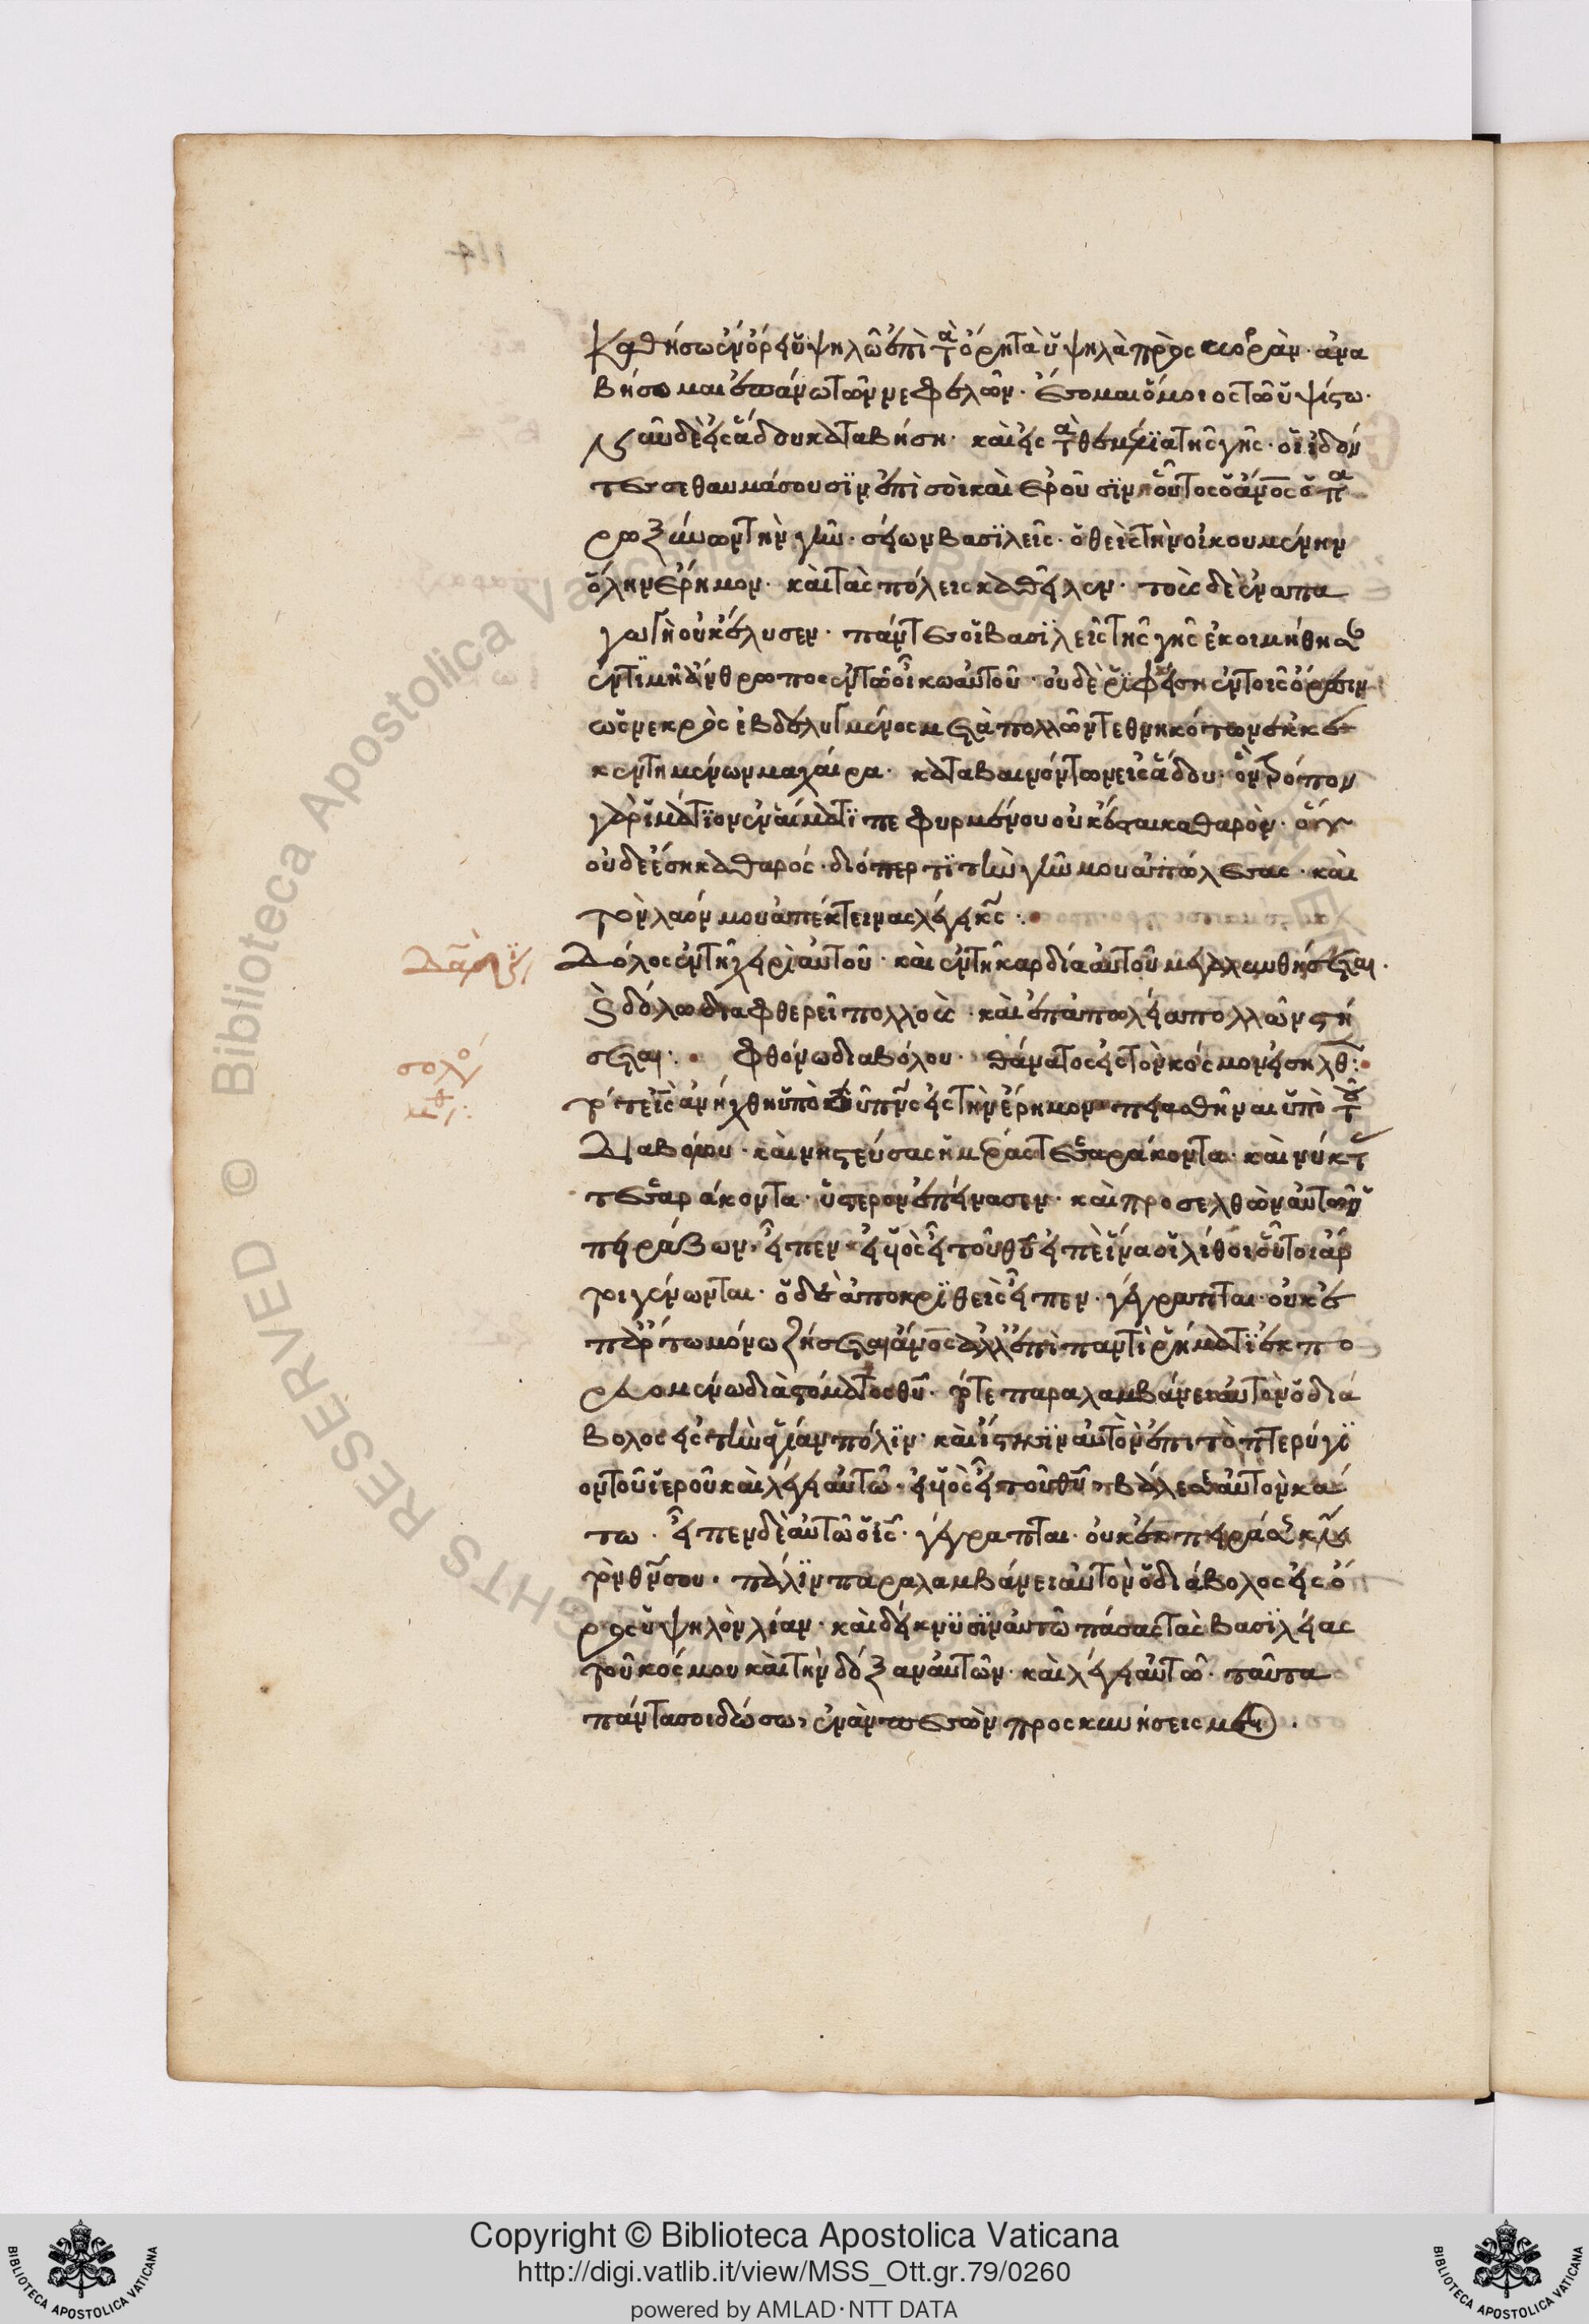 καθήσω ἐν ὄρει ὑψηλῷ ἐπὶ τὰ ὄρη τὰ ὑψηλὰ πρὸς βορρὰν· ἀνα
βήσομαι ἐπάνω τῶν νεφελῶν· ἔσομαι ὅμοιος τῷ ὑψίστω·
νῦν δὲ εἰς ἅδου καταβήση· καὶ εἰς τὰ θεμέλια τῆς γῆς· οἱ ἰδόν
τες σε θαυμάσουσιν ἐπὶ σοὶ καὶ ἐροῦσιν οὗτος ὁ ἄνος ὁ πα
ροξύνων τὴν γῆν· σείων βασιλεῖς· ὁ θεὶς τὴν οἰκουμένην
ὅλην ἔρημον· καὶ τὰς πόλεις καθεῖλεν· τοὺς δὲ ἐν ἀπα
γωγῆ οὐκ ἔλυσεν· πάντες οἱ βασιλεῖς τῆς γῆς ἐκοιμήθησαν
ἐν τιμῆ ἄνθρωπος ἐν τῷ οἴκω αὐτοῦ· οὐδὲ ῥιφείση ἐν τοῖς ὄρεσιν
ὡς νεκρὸς ἐβδελυγμένος μετὰ πολλῶν τεθνηκότων ἐκκε
κεντημένων μαχαίρα· καταβαινόντων εἰς ἅδου· ὃν τρόπον
γὰρ ἱμάτιον ἐν αἵματι πεφυρμένον οὐκ ἔσται καθαρὸν· οὕτως
οὐδὲ ἔση καθαρός· διό περ τὴν γῆν μου ἀπώλεσας· καὶ
τὸν λαόν μου ἀπέκτεινας λέγει κς:
Δόλος ἐν τῆ χειρὶ αὐτοῦ· καὶ ἐν τῆ καρδία αὐτοῦ μεγαλυνθήσεται·
καὶ δόλω διαφθερεῖ πολλοὺς· καὶ ἐπ' ἀπωλεία πολλῶν στή
σεται:· φθόνω διαβόλου· θάνατος εἰς τὸν κόσμον εἰσῆλθ:
ὁ ις ἀνήχθη ὑπὸ τοῦ πνς εἰς τὴν ἔρημον πειρασθῆναι ὑπὸ τοῦ
διαβόλου· καὶ νηστεύσας ἡμέρας τεσσαράκοντα· καὶ νύκτας
τεσσαράκοντα· ὕστερον ἐπείνασεν· καὶ προσελθὼν αὐτῶ ὁ
πειράζων· εἶπεν· εἰ υἱὸς εἶ τοῦ θυ εἰπὲ ἵνα οἱ λίθοι οὗτοι ἄρ
τοι γένωνται· ὁ δὲ ἀποκριθεὶς εἶπεν· γέγραπται· οὐκ ἐ
π' ἄρτω μόνω ζήσεται ἄνος ἀλλ' ἐπὶ παντὶ ῥήματι ἐκπο
ρευομένω διὰ στόματος θυ· τότε παραλαμβάνει αὐτὸν ὁ διά
βολος εἰς τὴν ἁγίαν πόλιν· καὶ ἵστησιν αὐτὸν ἐπὶ τὸ πτερύγι
ον τοῦ ἱεροῦ καὶ λέγει αὐτῶ· εἰ υἱὸς εἶ τοῦ θυ, βάλε σεαυτὸν κά
τω· εἶπεν δὲ αὐτῶ ὁ ις· γέγραπται· οὐκ ἐκπειράσεις κν
τὸν θν σου· πάλιν παραλαμβάνει αὐτὸν ὁ διάβολος εἰς ὄ
ρος ὑψηλὸν λίαν· καὶ δείκνυσιν αὐτῶ πάσας τὰς βασιλείας
τοῦ κόσμου καὶ τὴν δόξαν αὐτῶν· καὶ λέγει αὐτῶ· ταῦτα
πάντα σοι δώσω, ἐὰν πεσὼν προσκυνήσεις μοι.
Δανιήλ
σολο
μθ:
Copyright © Biblioteca Apostolica Vaticana
http://digi.vatlib.it/view/MSS_Ott.gr.79/0260
powered by AMLAD·NTT DATA
BIBLIOTECA APOSTOLICA VATICANA
BIBLIOTECA APOSTOLICA VATICANA